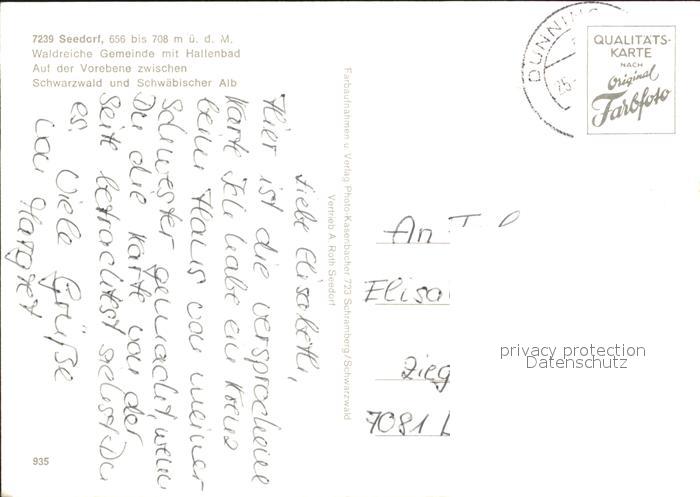 7239 Seedorf, 656 bis 708 m ü. d. M.
Waldreiche Gemeinde mit Hallenbad
Auf der Vorebene zwischen
Schwarzwald und Schwäbischer Alb
Liebe Elisabeth,
Hier ist die versprochene
Karte Ich habe ein Kreuz
beim Haus von meiner
Schwester gemacht, wenn
Du die Karte von der
Seite betrachtest siehst Du
es. Viele Grüße
von Margret
935
Farbaufnahmen u. Verlag Photo-Kasenbacher 723 Schramberg/Schwarzwald
Vertrieb A. Roth Seedorf
DUNNING
25.
QUALITÄTS-
KARTE
NACH
Original
Farbfoto
An
Elisa
Zieg
7081 L
privacy protection
Datenschutz